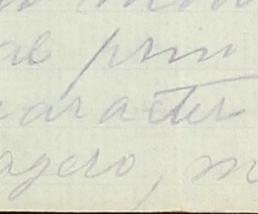 al prin
caracter
agero, m